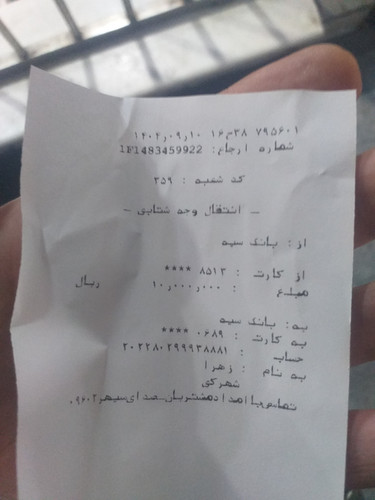 ۱۴۰۴/۰۹/۱۰ ۱۶:۳۸ ۷۹۵۶۰۱
شماره ارجاع: 1F1483459922
کد شعبه : ۳۵۹
- انتقال وجه شتابی -
از: بانک سپه
از کارت : ۸۵۱۳ ****
مبلغ : ۱۰,۰۰۰,۰۰۰ ریال
به: بانک سپه
به کارت : ۰۶۸۹ ****
حساب : ۲۰۲۲۸۰۲۹۹۹۳۸۸۸۱
به نام : زهرا
شهرکی
تماس با امداد مشتریان صدای سپهر ۰۹۶۰۲